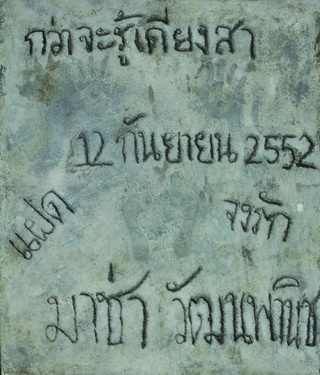 กว่าจะรู้เดียงสา
12 กันยายน 2552
แฝด
จงรัก
มาช่า วัฒนพานิช